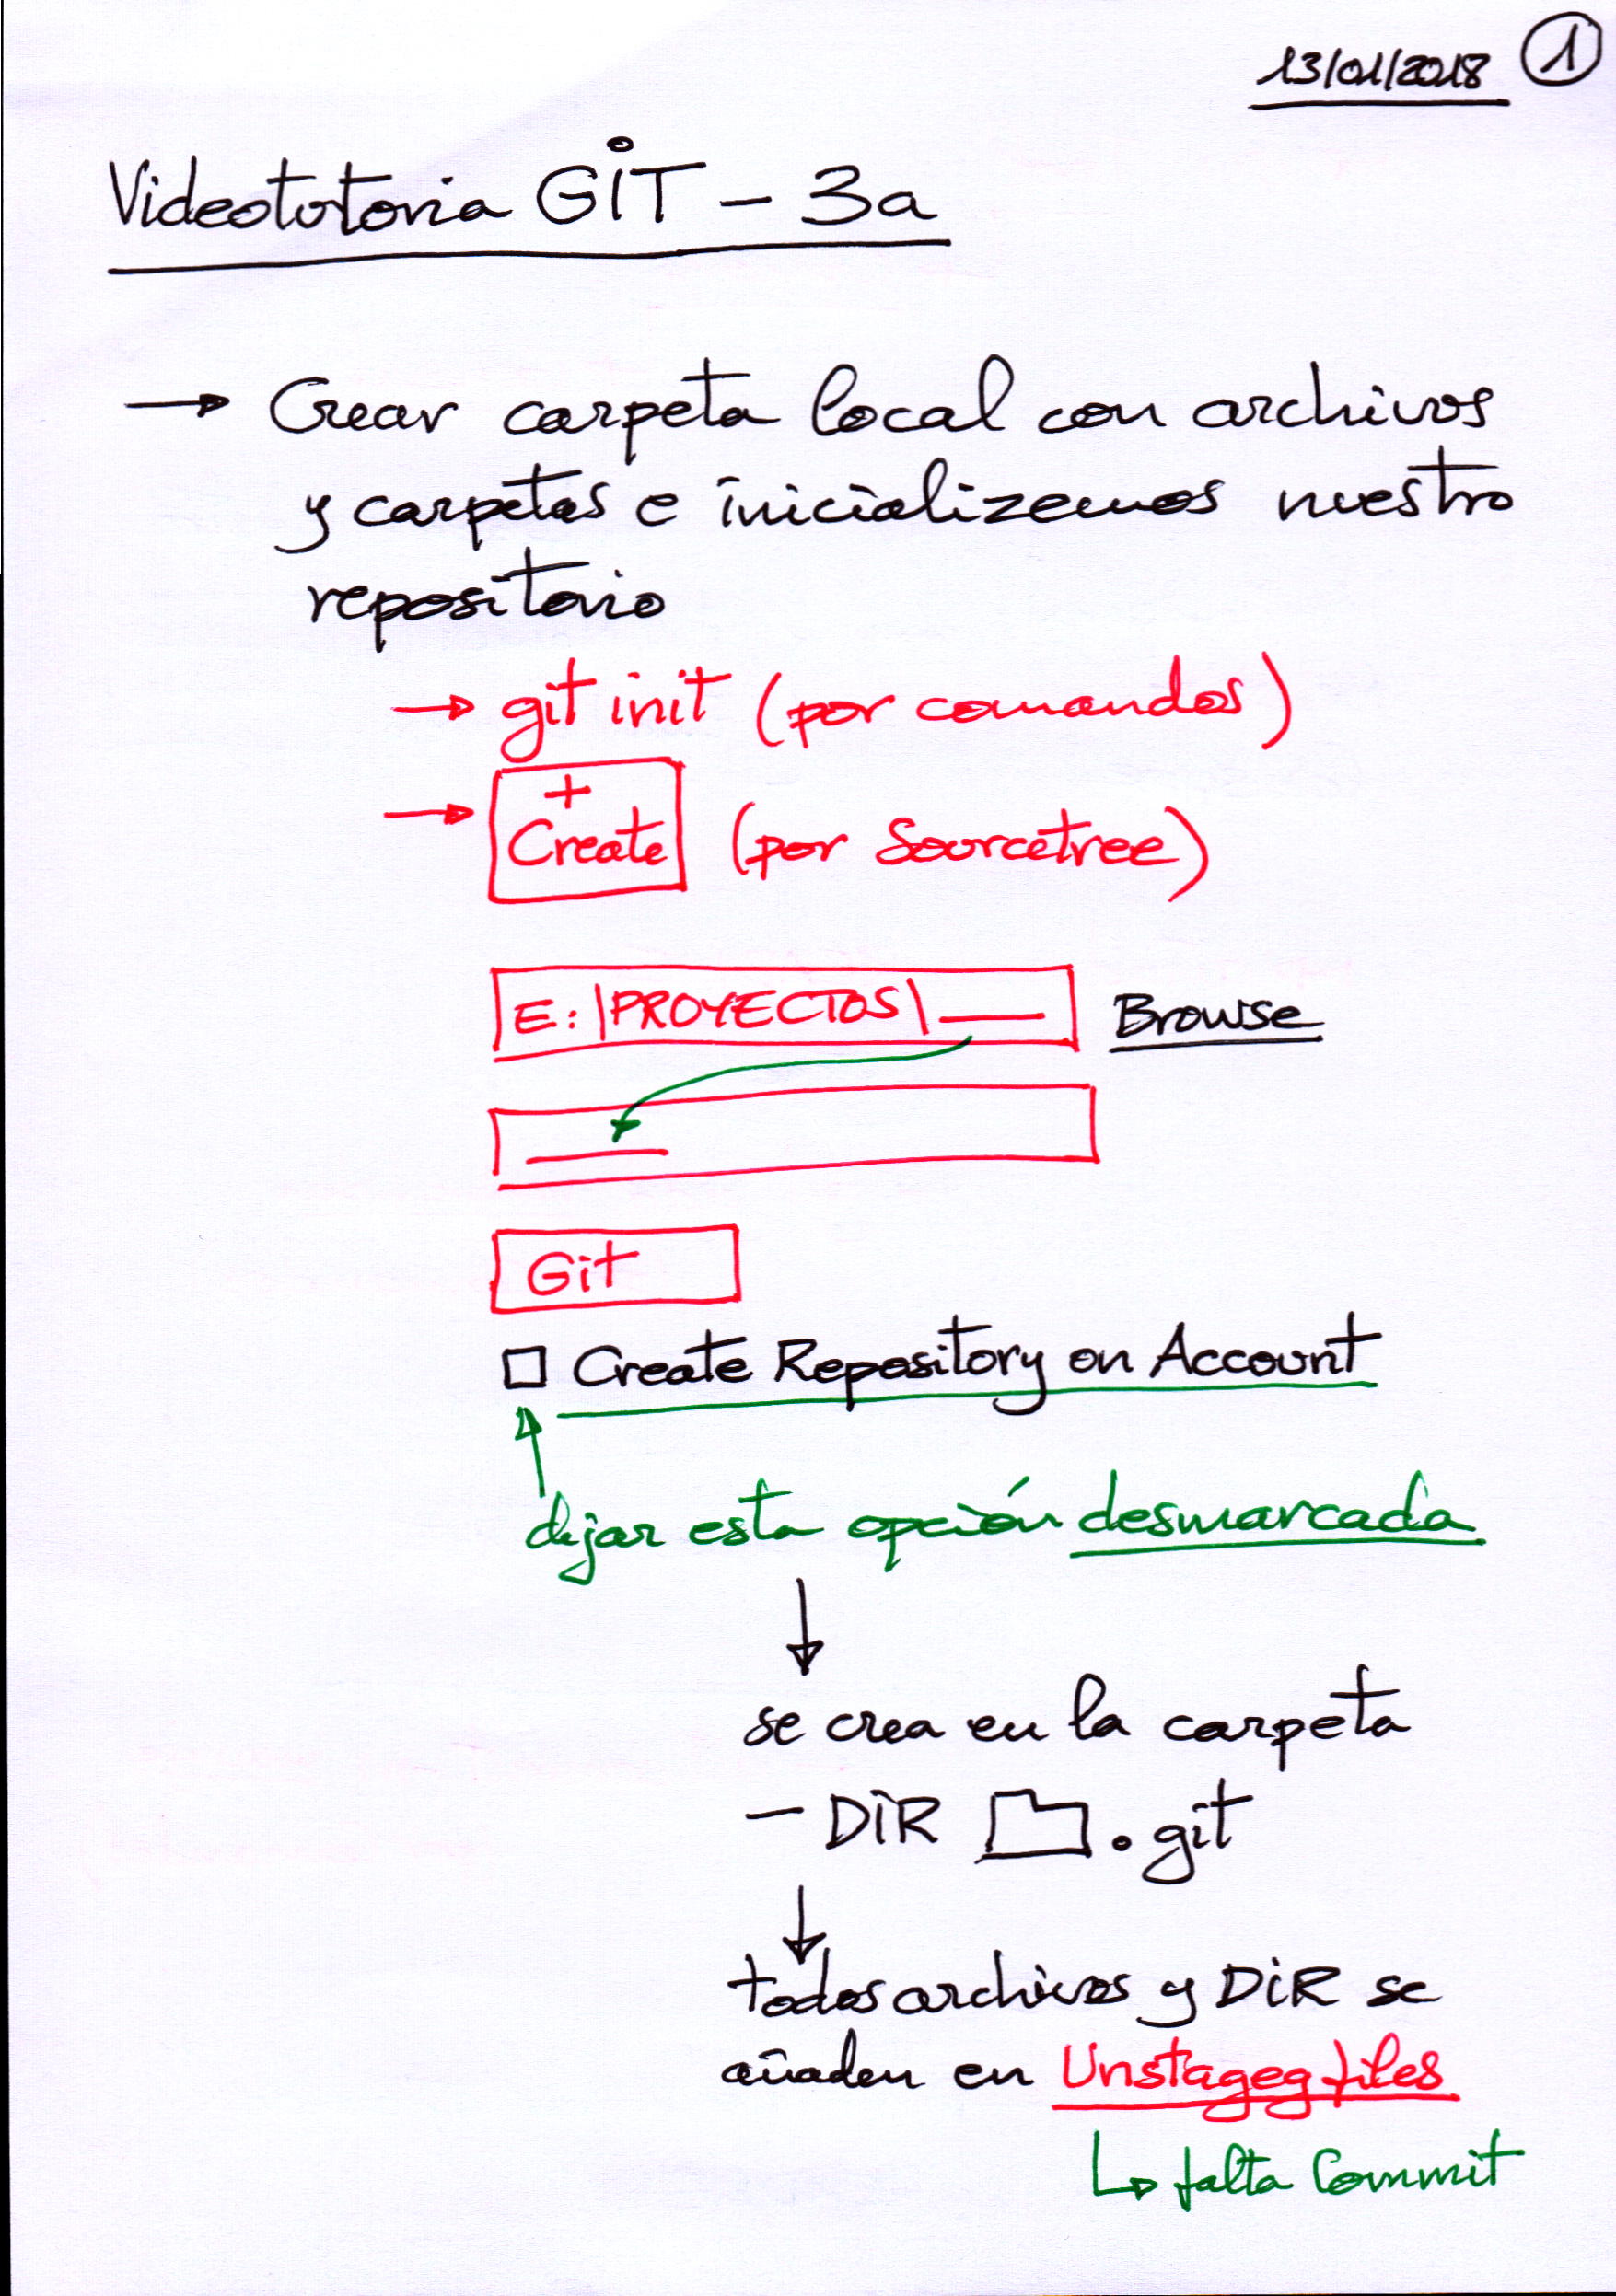 13/01/2018 1
Videototoria GIT - 3a
→ Crear carpeta local con archivos
y carpetas e inicializemos nuestro
repositorio
→ git init (por comandos)
→ + Create (por Sourcetree)
E:\PROYECTOS\___ Browse
Git
□ Create Repository on Account
dejar esta opción desmarcada
se crea en la carpeta
- DIR .git
todos archivos y DIR se
añaden en Unstageg files
↳ falta Commit